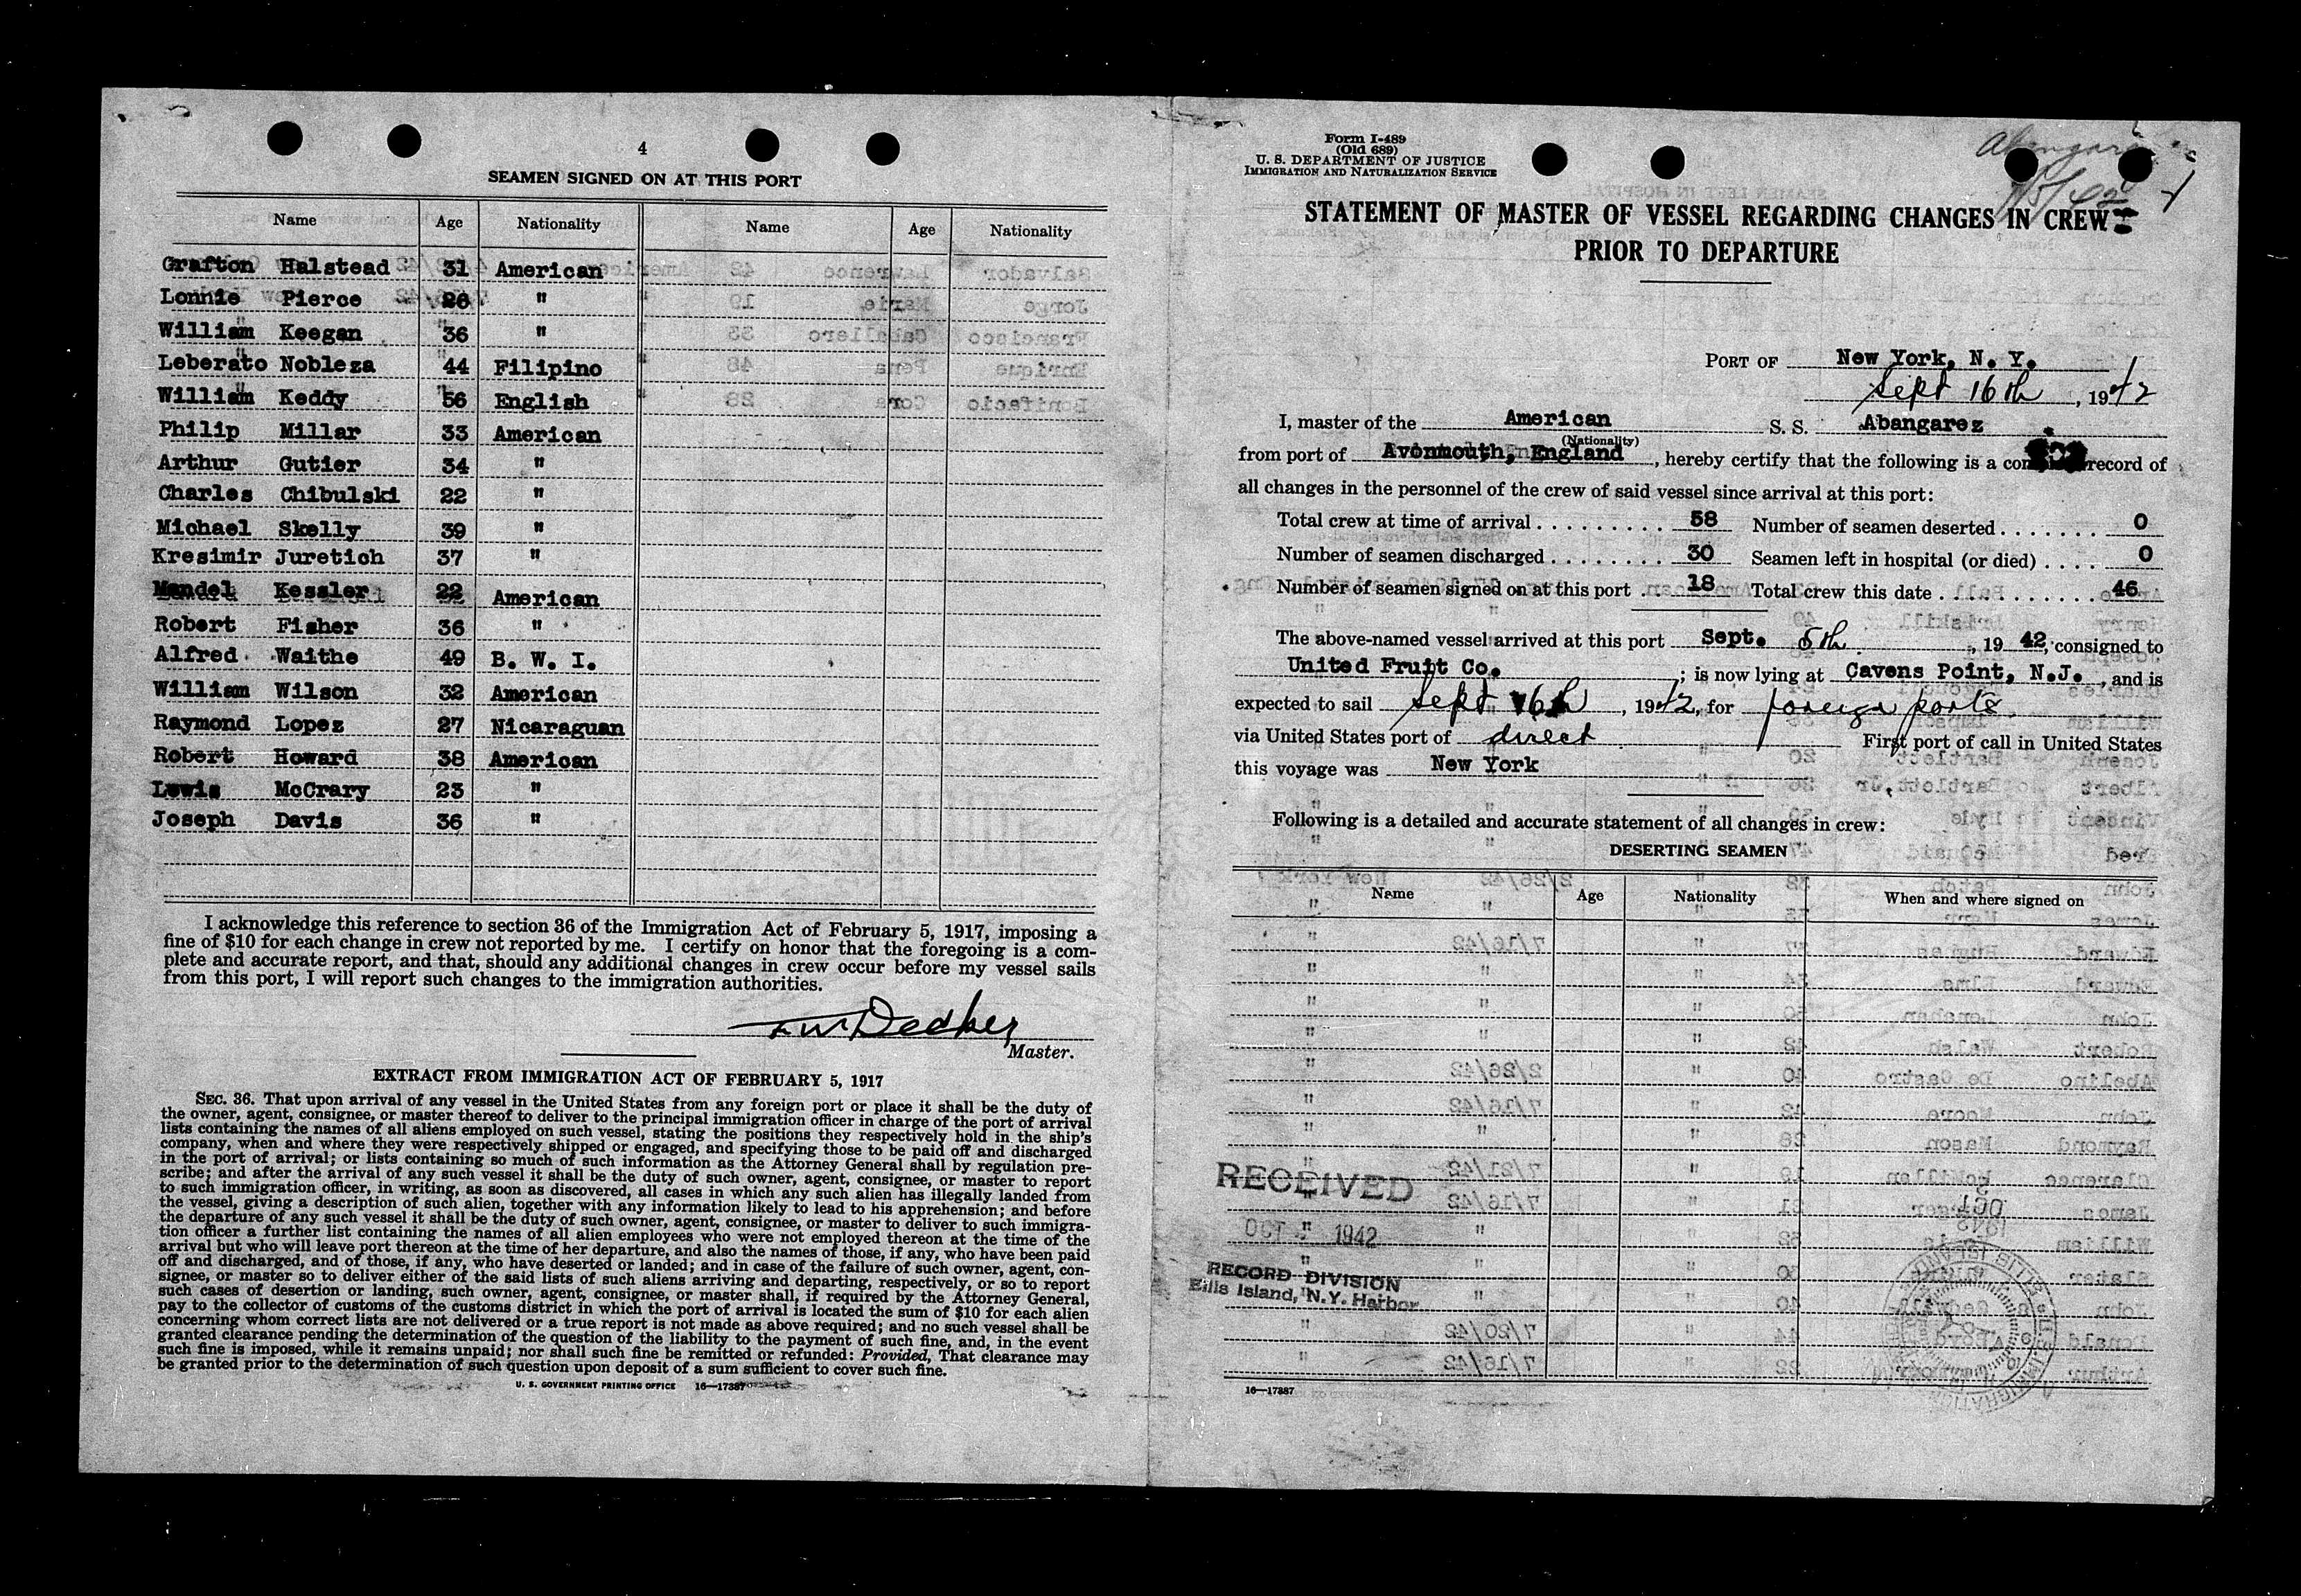 4
SEAMEN SIGNED ON AT THIS PORT
Name Age Nationality Name Age Nationality
Grafton Halstead 31 American
Lonnie Pierce 26 "
William Keegan 36 "
Leberato Nobleza 44 Filipino
William Keddy 56 English
Philip Millar 33 American
Arthur Gutier 34 "
Charles Chibulski 22 "
Michael Skelly 39 "
Kresimir Juretich 37 "
Mendel Kessler 22 American
Robert Fisher 36 "
Alfred Waithe 49 B. W. I.
William Wilson 32 American
Raymond Lopez 27 Nicaraguan
Robert Howard 38 American
Lewis McCrary 23 "
Joseph Davis 36 "
I acknowledge this reference to section 36 of the Immigration Act of February 5, 1917, imposing a
fine of $10 for each change in crew not reported by me. I certify on honor that the foregoing is a com-
plete and accurate report, and that, should any additional changes in crew occur before my vessel sails
from this port, I will report such changes to the immigration authorities.
Master.
EXTRACT FROM IMMIGRATION ACT OF FEBRUARY 5, 1917
SEC. 36. That upon arrival of any vessel in the United States from any foreign port or place it shall be the duty of
the owner, agent, consignee, or master thereof to deliver to the principal immigration officer in charge of the port of arrival
lists containing the names of all aliens employed on such vessel, stating the positions they respectively hold in the ship's
company, when and where they were respectively shipped or engaged, and specifying those to be paid off and discharged
in the port of arrival; or lists containing so much of such information as the Attorney General shall by regulation pre-
scribe; and after the arrival of any such vessel it shall be the duty of such owner, agent, consignee, or master to report
to such immigration officer, in writing, as soon as discovered, all cases in which any such alien has illegally landed from
the vessel, giving a description of such alien, together with any information likely to lead to his apprehension; and before
the departure of any such vessel it shall be the duty of such owner, agent, consignee, or master to deliver to such immigra-
tion officer a further list containing the names of all alien employees who were not employed thereon at the time of the
arrival but who will leave port thereon at the time of her departure, and also the names of those, if any, who have been paid
off and discharged, and of those, if any, who have deserted or landed; and in case of the failure of such owner, agent, con-
signee, or master so to deliver either of the said lists of such aliens arriving and departing, respectively, or so to report
such cases of desertion or landing, such owner, agent, consignee, or master shall, if required by the Attorney General,
pay to the collector of customs of the customs district in which the port of arrival is located the sum of $10 for each alien
concerning whom correct lists are not delivered or a true report is not made as above required; and no such vessel shall be
granted clearance pending the determination of the question of the liability to the payment of such fine, and, in the event
such fine is imposed, while it remains unpaid; nor shall such fine be remitted or refunded: Provided, That clearance may
be granted prior to the determination of such question upon deposit of a sum sufficient to cover such fine.
U. S. GOVERNMENT PRINTING OFFICE 16—17387
Form I-489
(Old 689)
U. S. DEPARTMENT OF JUSTICE
IMMIGRATION AND NATURALIZATION SERVICE
STATEMENT OF MASTER OF VESSEL REGARDING CHANGES IN CREW
PRIOR TO DEPARTURE
PORT OF New York, N. Y.
Sept 16th, 1942
I, master of the American S. S. Abangarez
(Nationality)
from port of Avonmouth, England, hereby certify that the following is a record of
all changes in the personnel of the crew of said vessel since arrival at this port:
Total crew at time of arrival . . . . . . . . . 58 Number of seamen deserted . . . . . . . 0
Number of seamen discharged . . . . . . . . 30 Seamen left in hospital (or died) . . . . 0
Number of seamen signed on at this port . 18 Total crew this date . . . . . . . . . . . 46
The above-named vessel arrived at this port Sept. 5th, 1942, consigned to
United Fruit Co. ; is now lying at Cavens Point, N.J. , and is
expected to sail Sept 16th, 1942, for foreign ports.
via United States port of direct First port of call in United States
this voyage was New York
Following is a detailed and accurate statement of all changes in crew:
DESERTING SEAMEN
Name Age Nationality When and where signed on
RECEIVED
OCT 1942
RECORD DIVISION
Ellis Island, N.Y. Harbor
16—17387